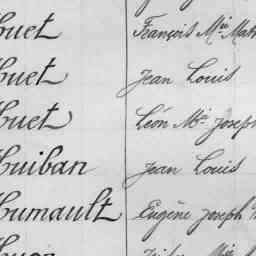 Huet François Mie Math
Huet Jean Louis
Huet Léon Mie Joseph
Huiban Jean Louis
Humault Eugène Joseph M